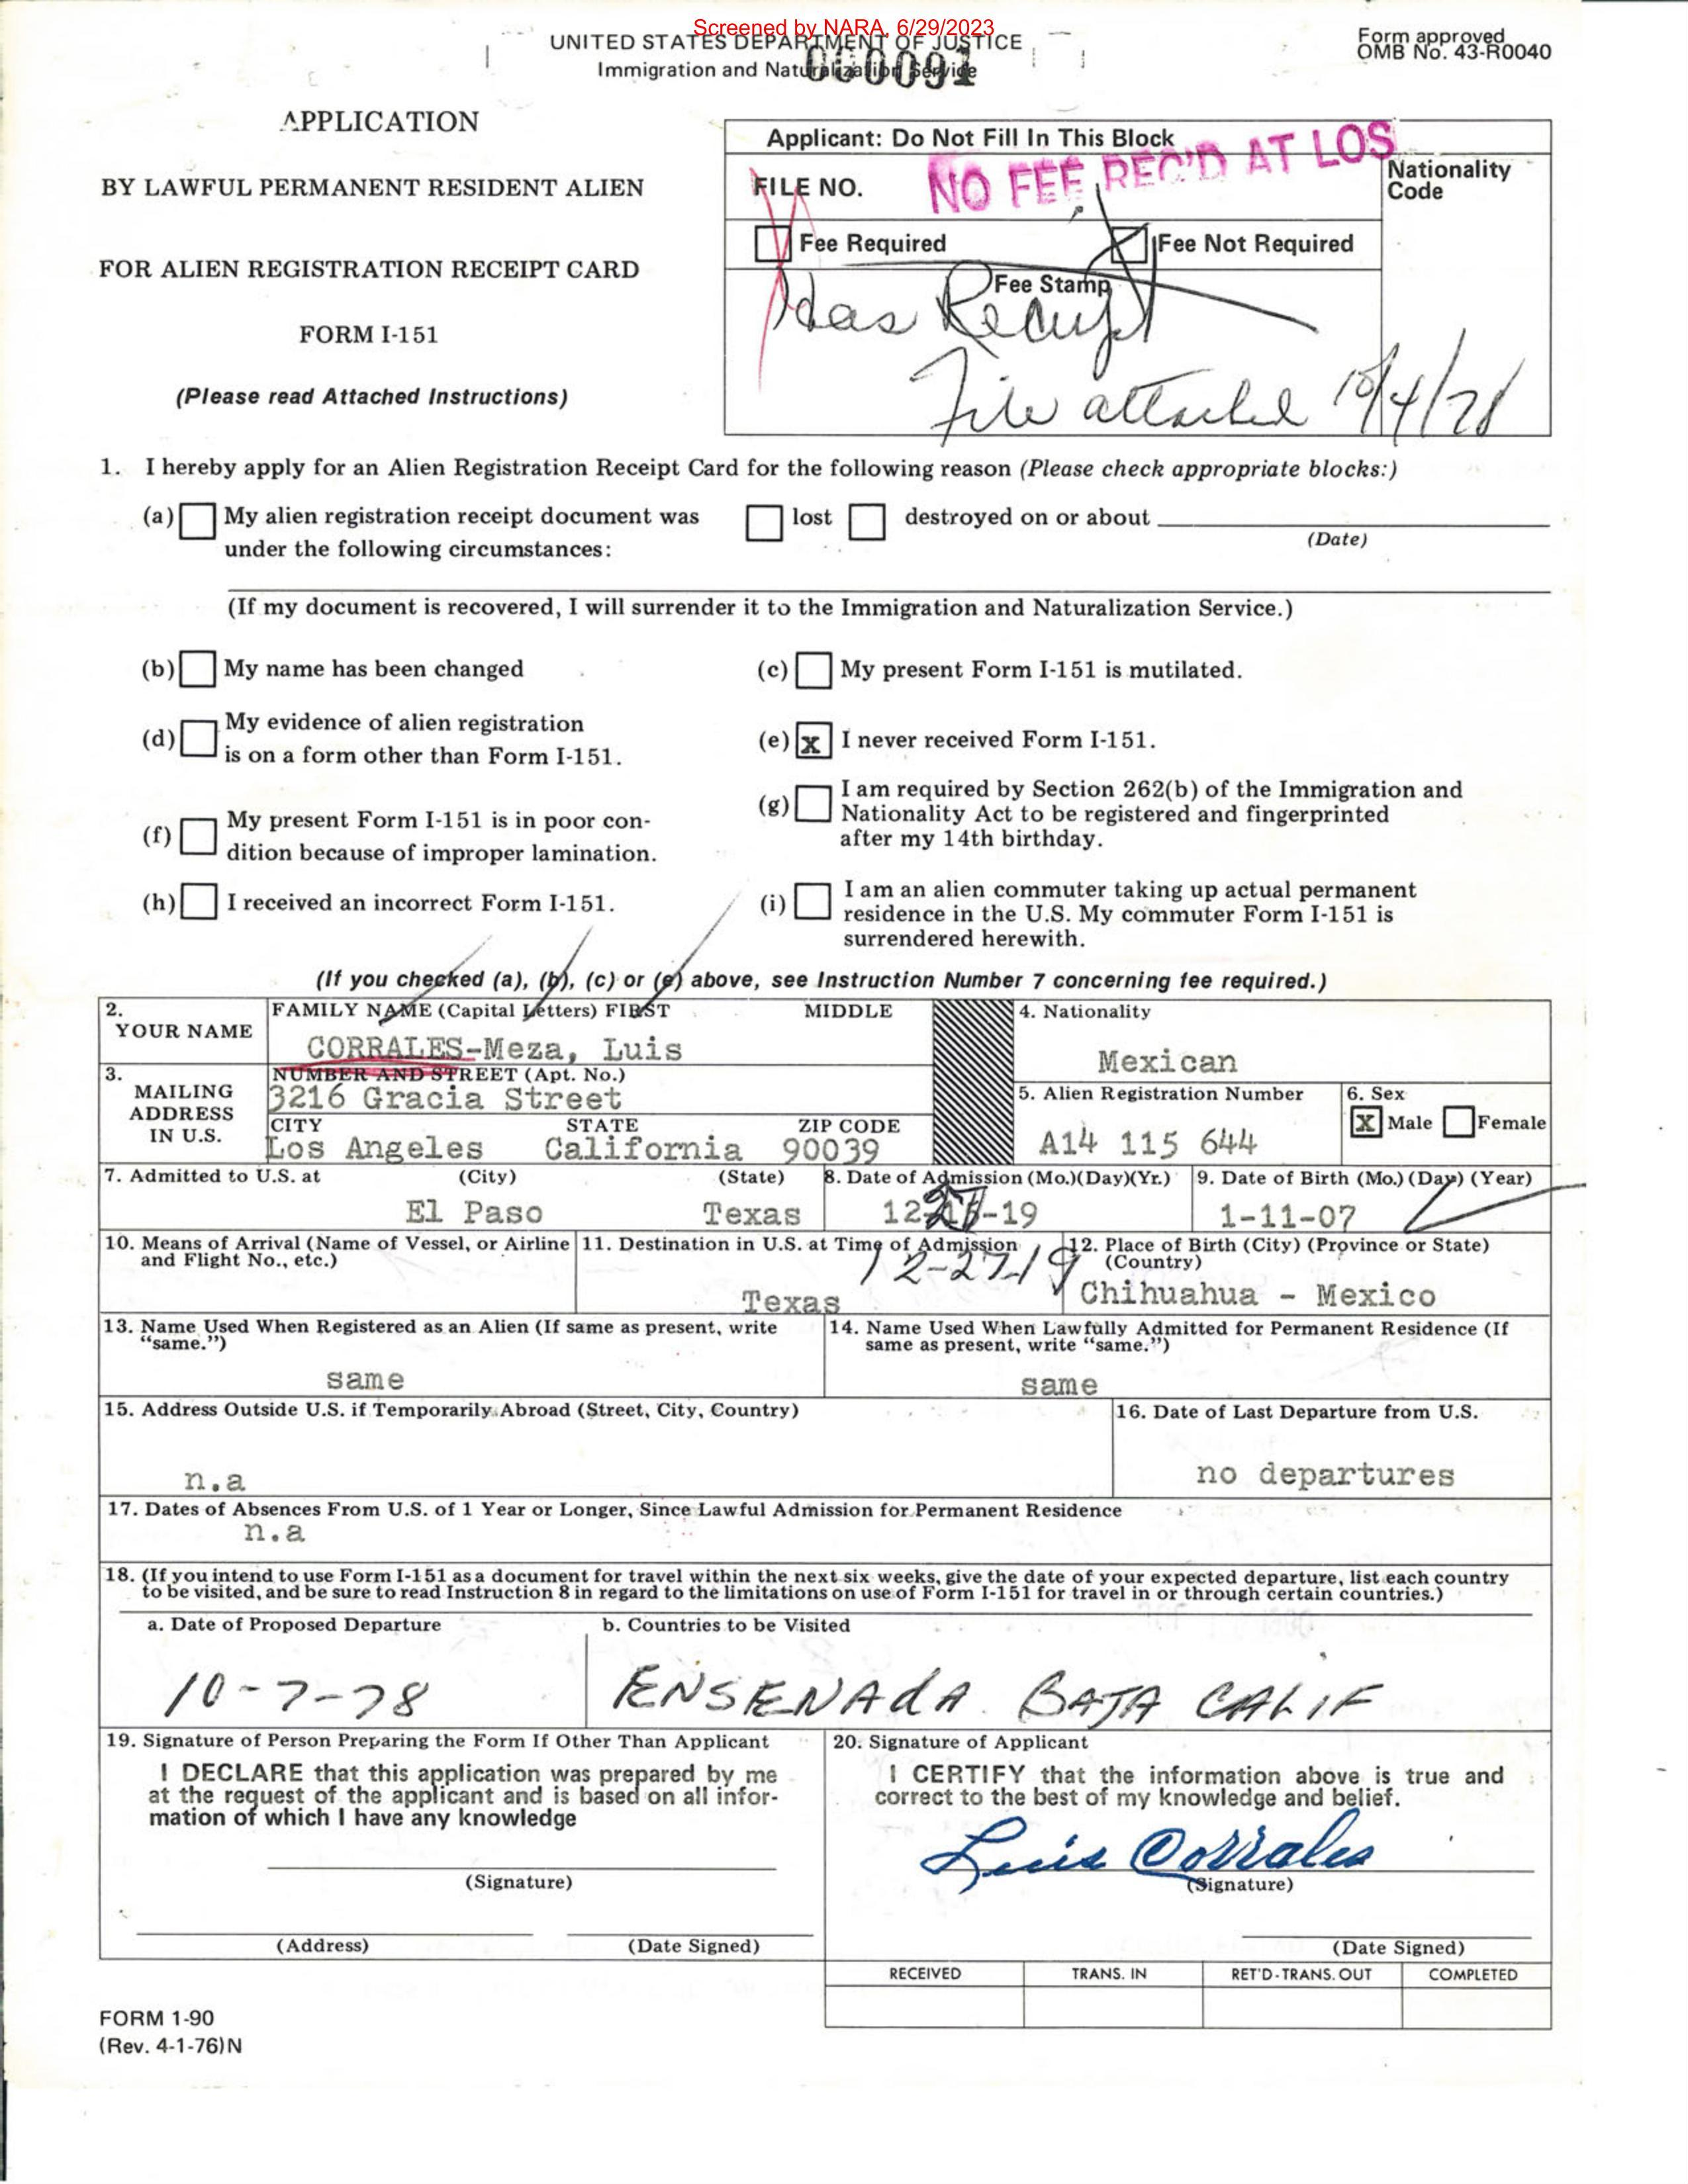 Screened by NARA, 6/29/2023
UNITED STATES DEPARTMENT OF JUSTICE
Immigration and Naturalization Service
000091
Form approved
OMB No. 43-R0040
APPLICATION
BY LAWFUL PERMANENT RESIDENT ALIEN
FOR ALIEN REGISTRATION RECEIPT CARD
FORM I-151
(Please read Attached Instructions)
Applicant: Do Not Fill In This Block
NO FEE REC'D AT LOS
FILE NO.
Nationality
Code
Fee Required
Fee Not Required
Fee Stamp
Has Receipt
File attached 10/4/78
1. I hereby apply for an Alien Registration Receipt Card for the following reason (Please check appropriate blocks:)
(a) My alien registration receipt document was lost destroyed on or about
(Date)
under the following circumstances:
(If my document is recovered, I will surrender it to the Immigration and Naturalization Service.)
(b) My name has been changed
(c) My present Form I-151 is mutilated.
(d) My evidence of alien registration
is on a form other than Form I-151.
(e) x I never received Form I-151.
(f) My present Form I-151 is in poor con-
dition because of improper lamination.
(g) I am required by Section 262(b) of the Immigration and
Nationality Act to be registered and fingerprinted
after my 14th birthday.
(h) I received an incorrect Form I-151.
(i) I am an alien commuter taking up actual permanent
residence in the U.S. My commuter Form I-151 is
surrendered herewith.
(If you checked (a), (b), (c) or (e) above, see Instruction Number 7 concerning fee required.)
2.
YOUR NAME
FAMILY NAME (Capital Letters) FIRST MIDDLE
CORRALES-Meza, Luis
3.
MAILING
ADDRESS
IN U.S.
NUMBER AND STREET (Apt. No.)
3216 Gracia Street
CITY STATE ZIP CODE
Los Angeles California 90039
4. Nationality
Mexican
5. Alien Registration Number
A14 115 644
6. Sex
X Male Female
7. Admitted to U.S. at (City) (State)
El Paso Texas
8. Date of Admission (Mo.)(Day)(Yr.)
12-27-19
12-27-19
9. Date of Birth (Mo.) (Day) (Year)
1-11-07
10. Means of Arrival (Name of Vessel, or Airline
and Flight No., etc.)
11. Destination in U.S. at Time of Admission
Texas
12. Place of Birth (City) (Province or State)
(Country)
Chihuahua - Mexico
13. Name Used When Registered as an Alien (If same as present, write
“same.”)
same
14. Name Used When Lawfully Admitted for Permanent Residence (If
same as present, write “same.”)
same
15. Address Outside U.S. if Temporarily Abroad (Street, City, Country)
n.a
16. Date of Last Departure from U.S.
no departures
17. Dates of Absences From U.S. of 1 Year or Longer, Since Lawful Admission for Permanent Residence
n.a
18. (If you intend to use Form I-151 as a document for travel within the next six weeks, give the date of your expected departure, list each country
to be visited, and be sure to read Instruction 8 in regard to the limitations on use of Form I-151 for travel in or through certain countries.)
a. Date of Proposed Departure
10-7-78
b. Countries to be Visited
ENSENAdA BAJA CALIF
19. Signature of Person Preparing the Form If Other Than Applicant
I DECLARE that this application was prepared by me
at the request of the applicant and is based on all infor-
mation of which I have any knowledge
(Signature)
(Address) (Date Signed)
20. Signature of Applicant
I CERTIFY that the information above is true and
correct to the best of my knowledge and belief.
Luis Corrales
(Signature)
(Date Signed)
RECEIVED TRANS. IN RET'D-TRANS. OUT COMPLETED
FORM 1-90
(Rev. 4-1-76)N